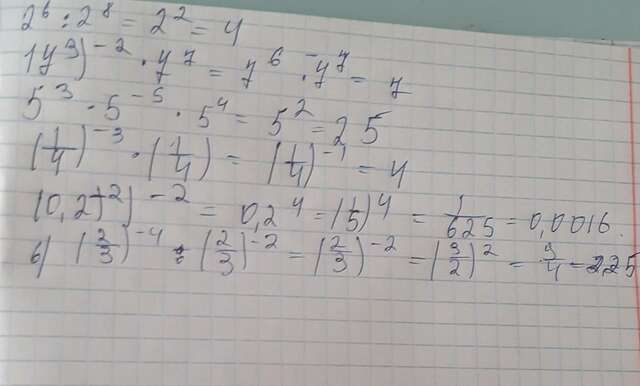 2⁶ : 2⁸ = 2² = 4
(y³)⁻² · y⁷ = 7⁶ · ⁻y⁷ = 7
5³ · 5⁻⁵ · 5⁴ = 5² = 25
(1/4)⁻³ · (1/4) = (1/4)⁻¹ = 4
(0,2)⁺²)⁻² = 0,2⁴ = (1/5)⁴ = 1/625 = 0,0016.
б) (2/3)⁻⁴ : (2/3)⁻² = (2/3)⁻² = (3/2)² = 9/4 = 2,25